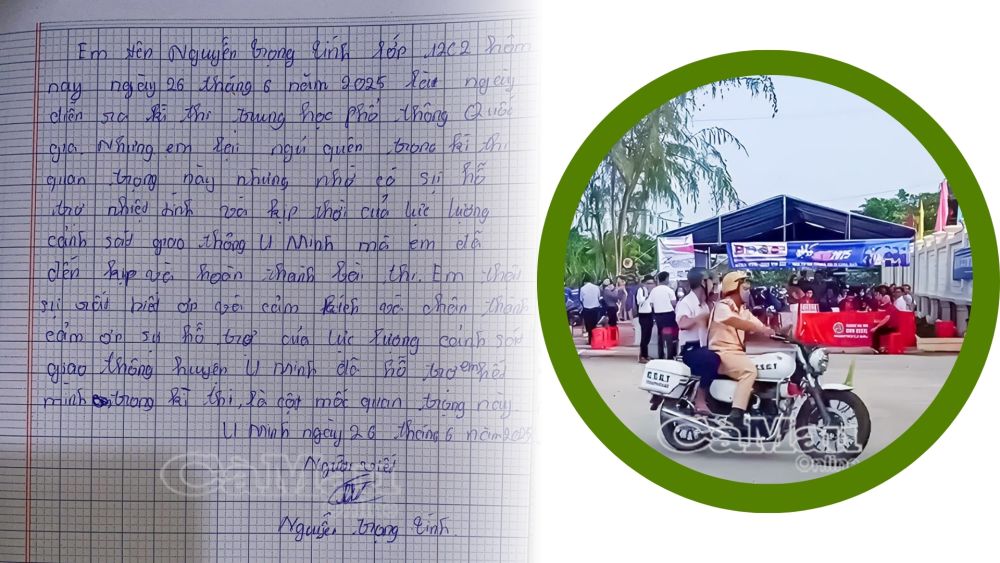 Em tên Nguyễn Trọng Tính lớp 12C2 hôm
nay ngày 26 tháng 6 năm 2025 là ngày
diễn ra kì thi trung học phổ thông Quốc
gia. Nhưng em lại ngủ quên trong kì thi
quan trọng này nhưng nhờ có sự hỗ
trợ nhiệt tình và kịp thời của lực lượng
cảnh sát giao thông U Minh mà em đã
đến kịp và hoàn thành bài thi. Em thật
sự rất biết ơn và cảm kích và chân thành
cảm ơn sự hỗ trợ của lực lượng cảnh sát
giao thông huyện U Minh đã hỗ trợ em hết
mình trong kì thi, là cột mốc quan trọng này.
U Minh ngày 26 tháng 6 năm 2025
Người viết
Nguyễn Trọng Tính.
CaMau
Online
C.S.G.T
CaMau
Online